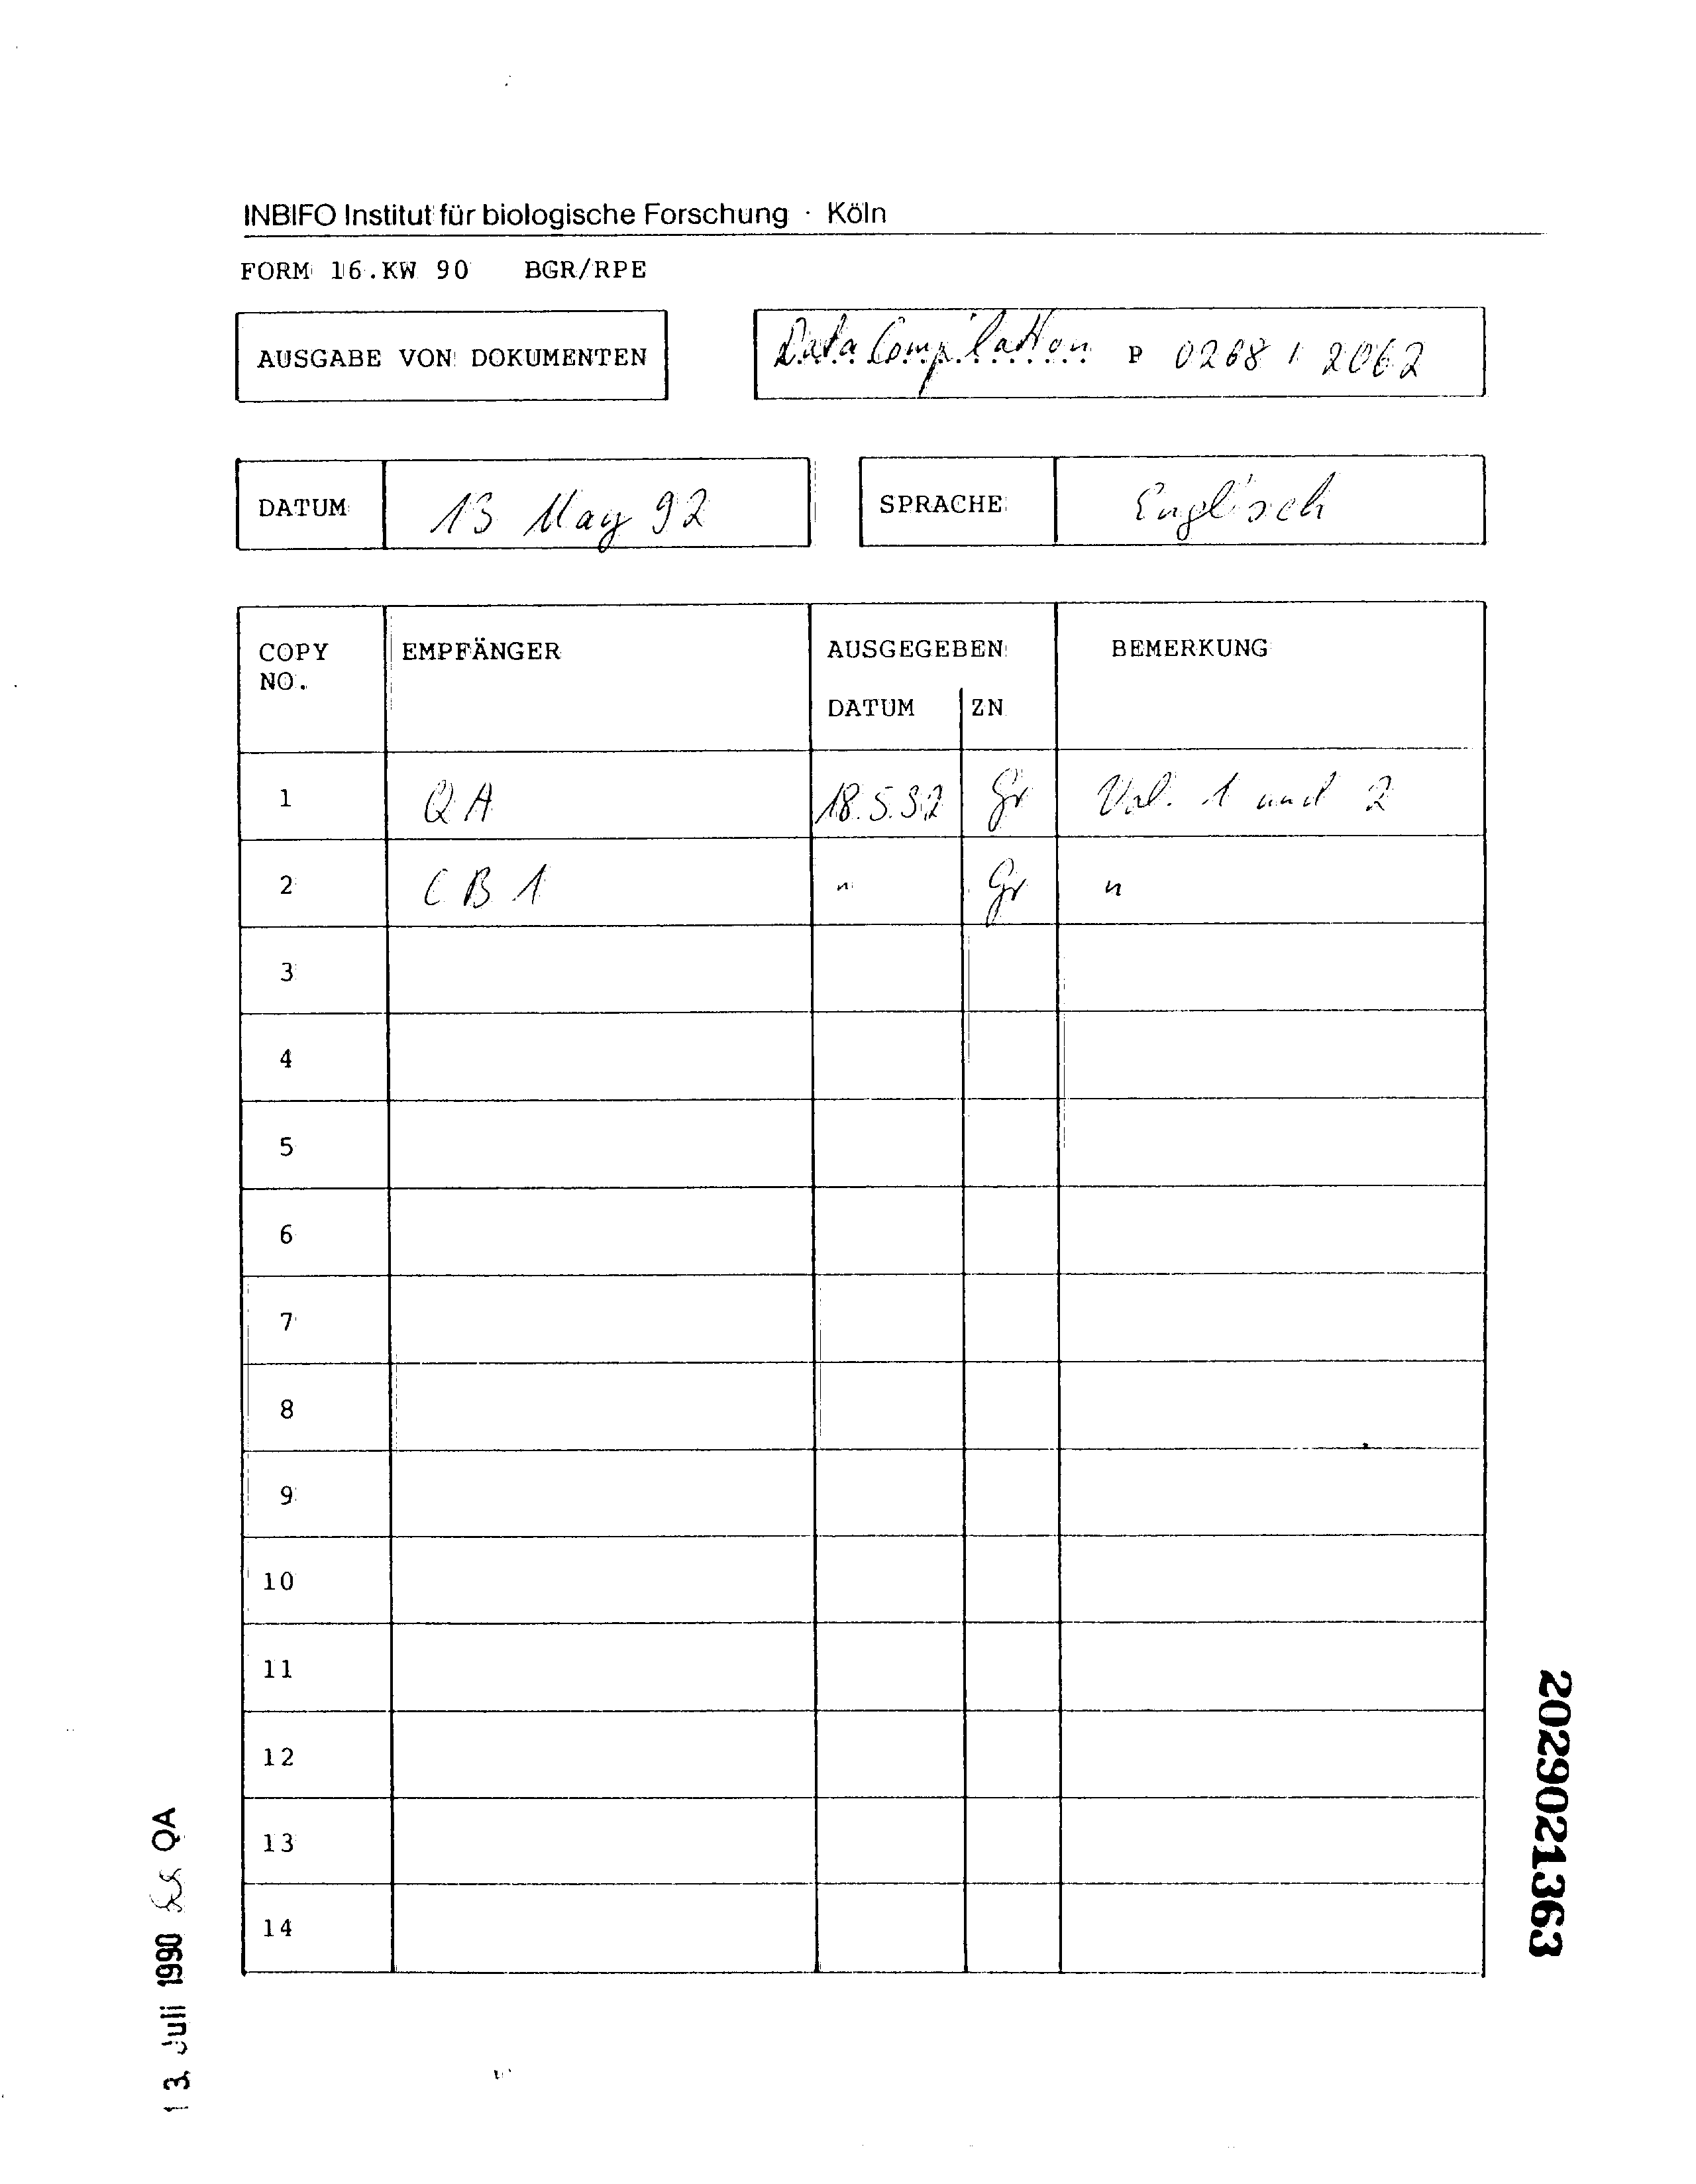 INBIFO Institut für biologische Forschung · Köln
FORM 16.KW 90 BGR/RPE
AUSGABE VON DOKUMENTEN
Data Compilation P 0268 / 2062
DATUM 13 May 92
SPRACHE Englisch
COPY NO. EMPFÄNGER AUSGEGEBEN BEMERKUNG
DATUM ZN
1 QA 18.5.92 Gr Vol. 1 und 2
2 CB1 " Gr "
3
4
5
6
7
8
9
10
11
12
13
14
13. Juli 1990 QA
2029021363